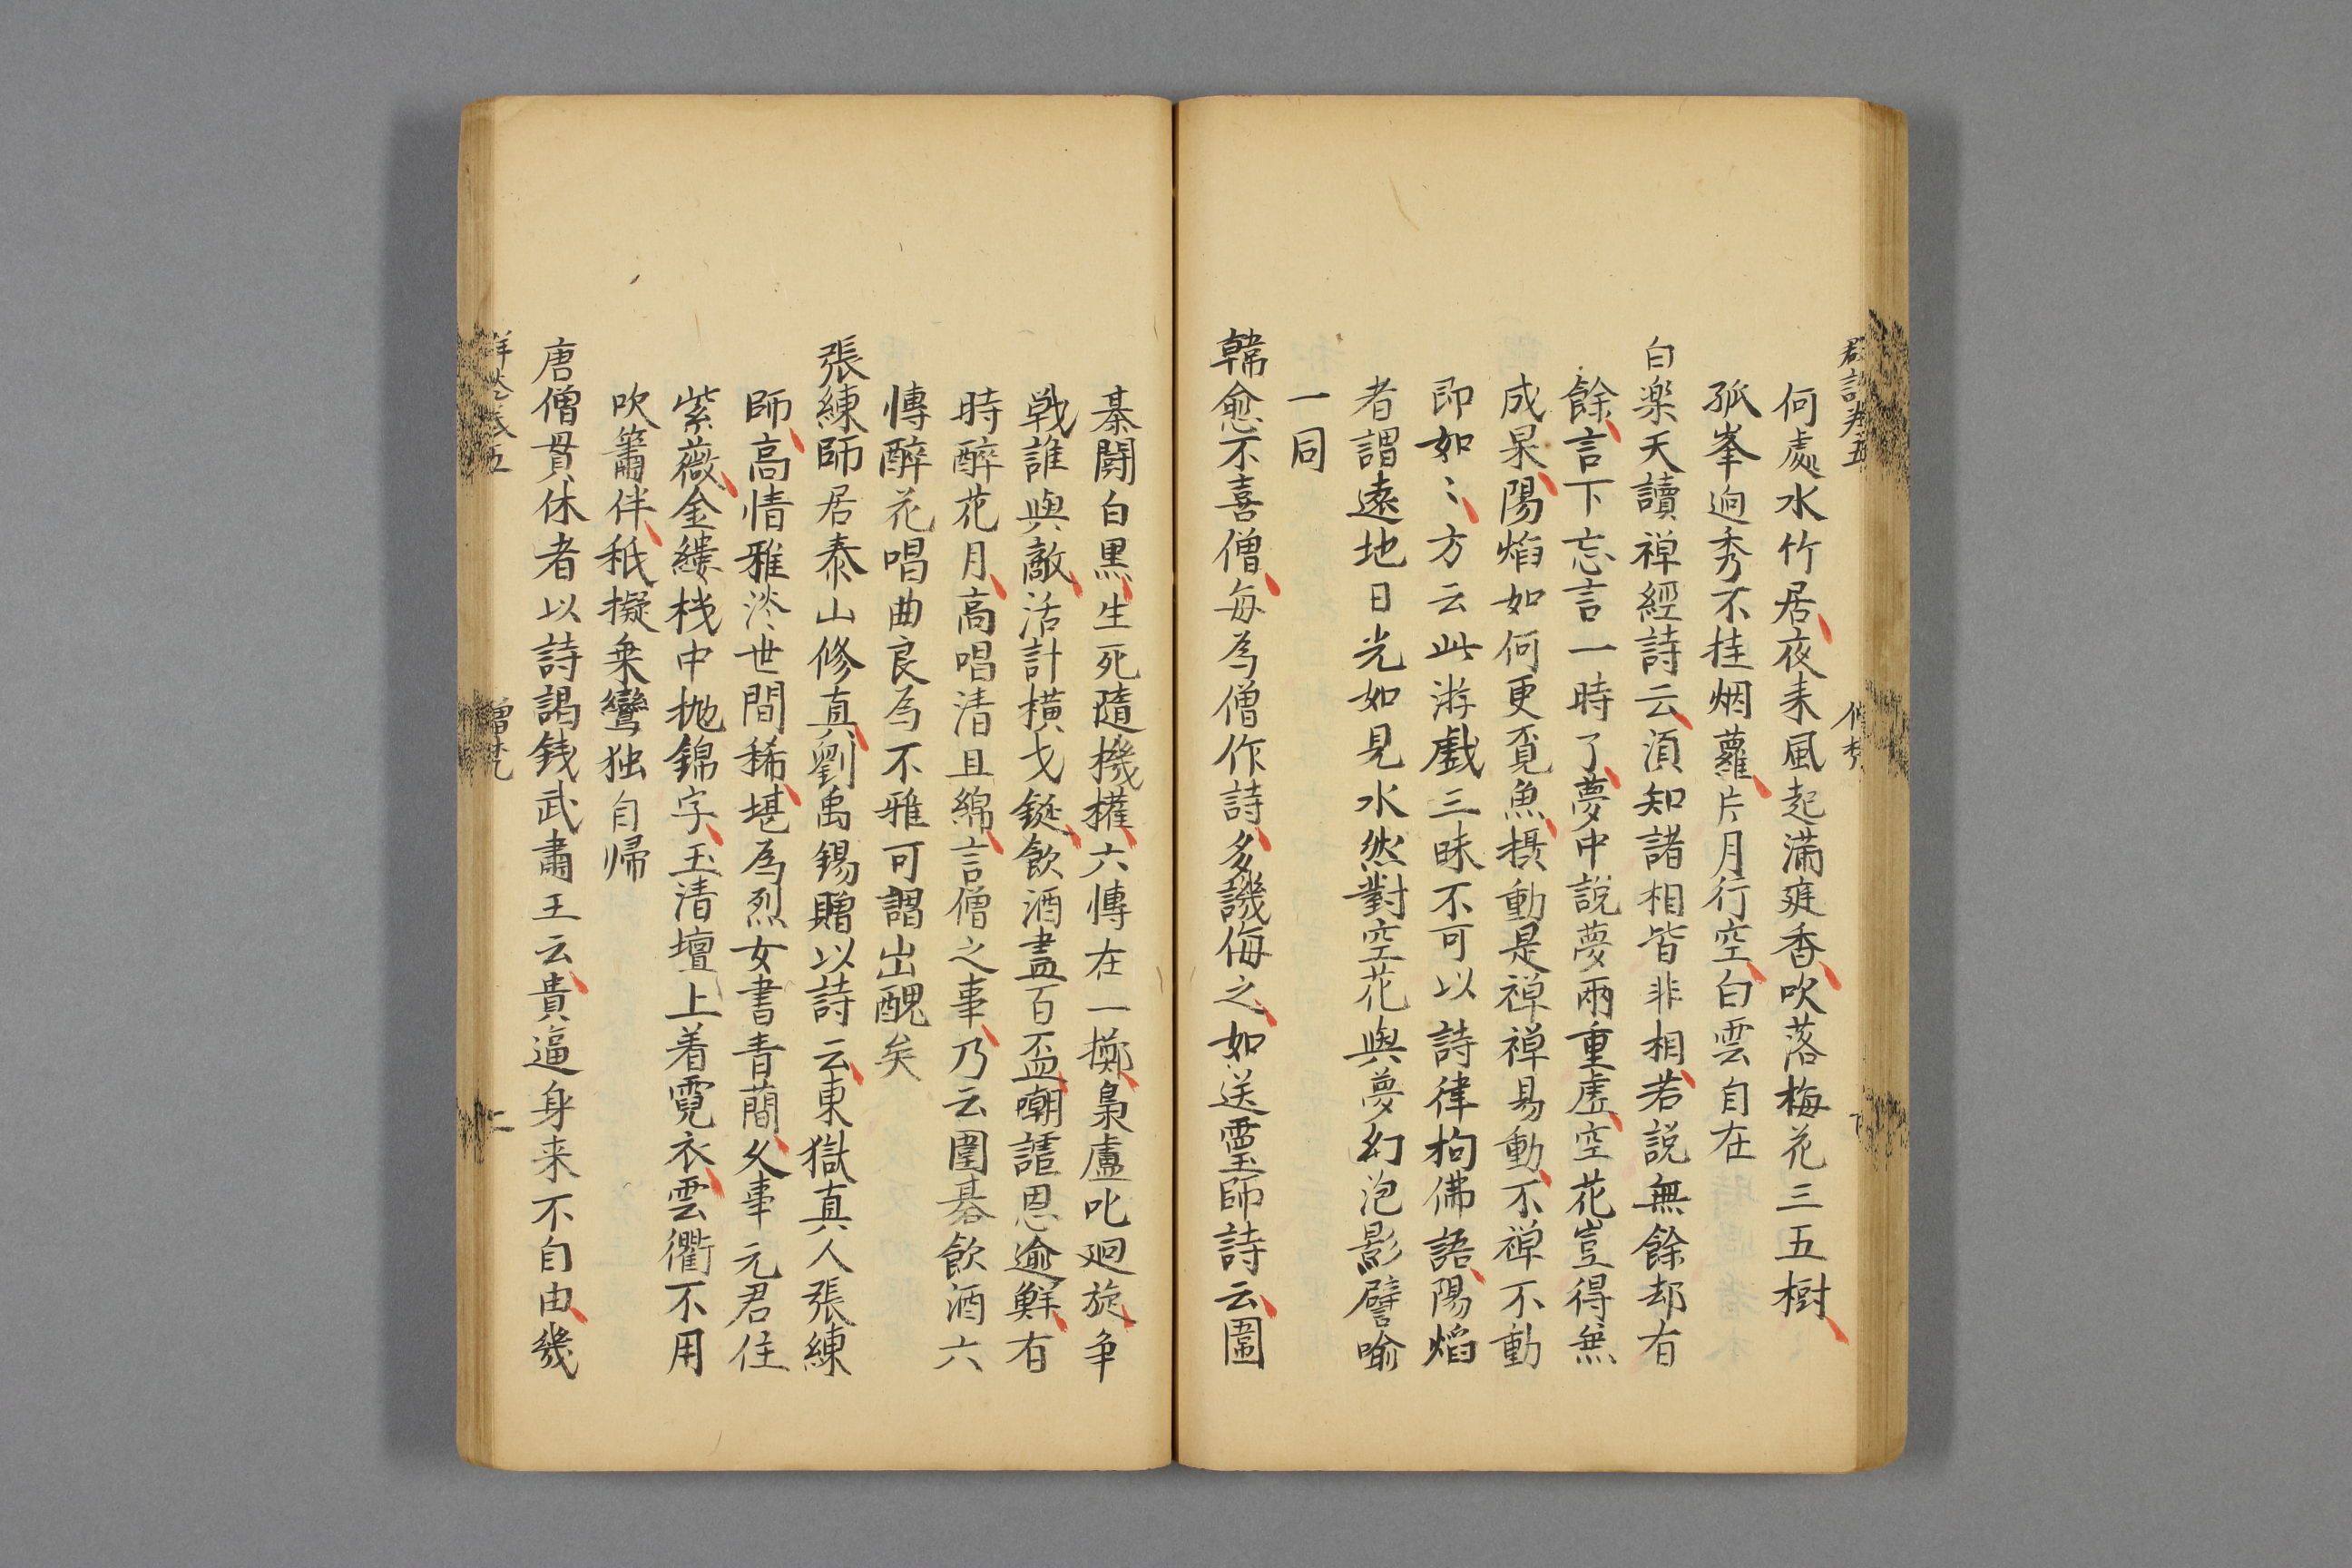 何處水竹居夜来風起滿庭香吹落梅花三五樹
孤峯迥秀不挂烟蘿片月行空白雲自在
白楽天讀禅經詩云湏知諸相皆非相若説無餘却有
餘言下忘言一時了夢中説夢兩重虚空花豈得無
成杲陽焰如何更覔魚摂動是禅禅易動不禅不動
即如〻方云此游戲三昧不可以詩律拘佛語陽焰
者謂遠地日光如見水然對空花與夢幻泡影譬喻
一同
韓愈不喜僧每為僧作詩多譏侮之如送霊師詩云圍
棊鬪白黒生死隨機權六慱在一擲梟盧叱廻旋争
戦誰與敵活計横戈鋋飲酒盡百盃嘲諧恩逾鮮有
時醉花月高唱清且綿言僧之事乃云圍碁飲酒六
慱醉花唱曲良為不雅可謂出醜矣
張練師居泰山修真劉禹錫贈以詩云東獄真人張練
師高情雅淡世間稀堪為烈女書青蕳久事元君住
紫薇金縷栈中抛錦字玉清壇上着霓衣雲衢不用
吹簫伴秖擬乗鸞独自帰
唐僧貫休者以詩謁銭武肅王云貴逼身来不自由幾